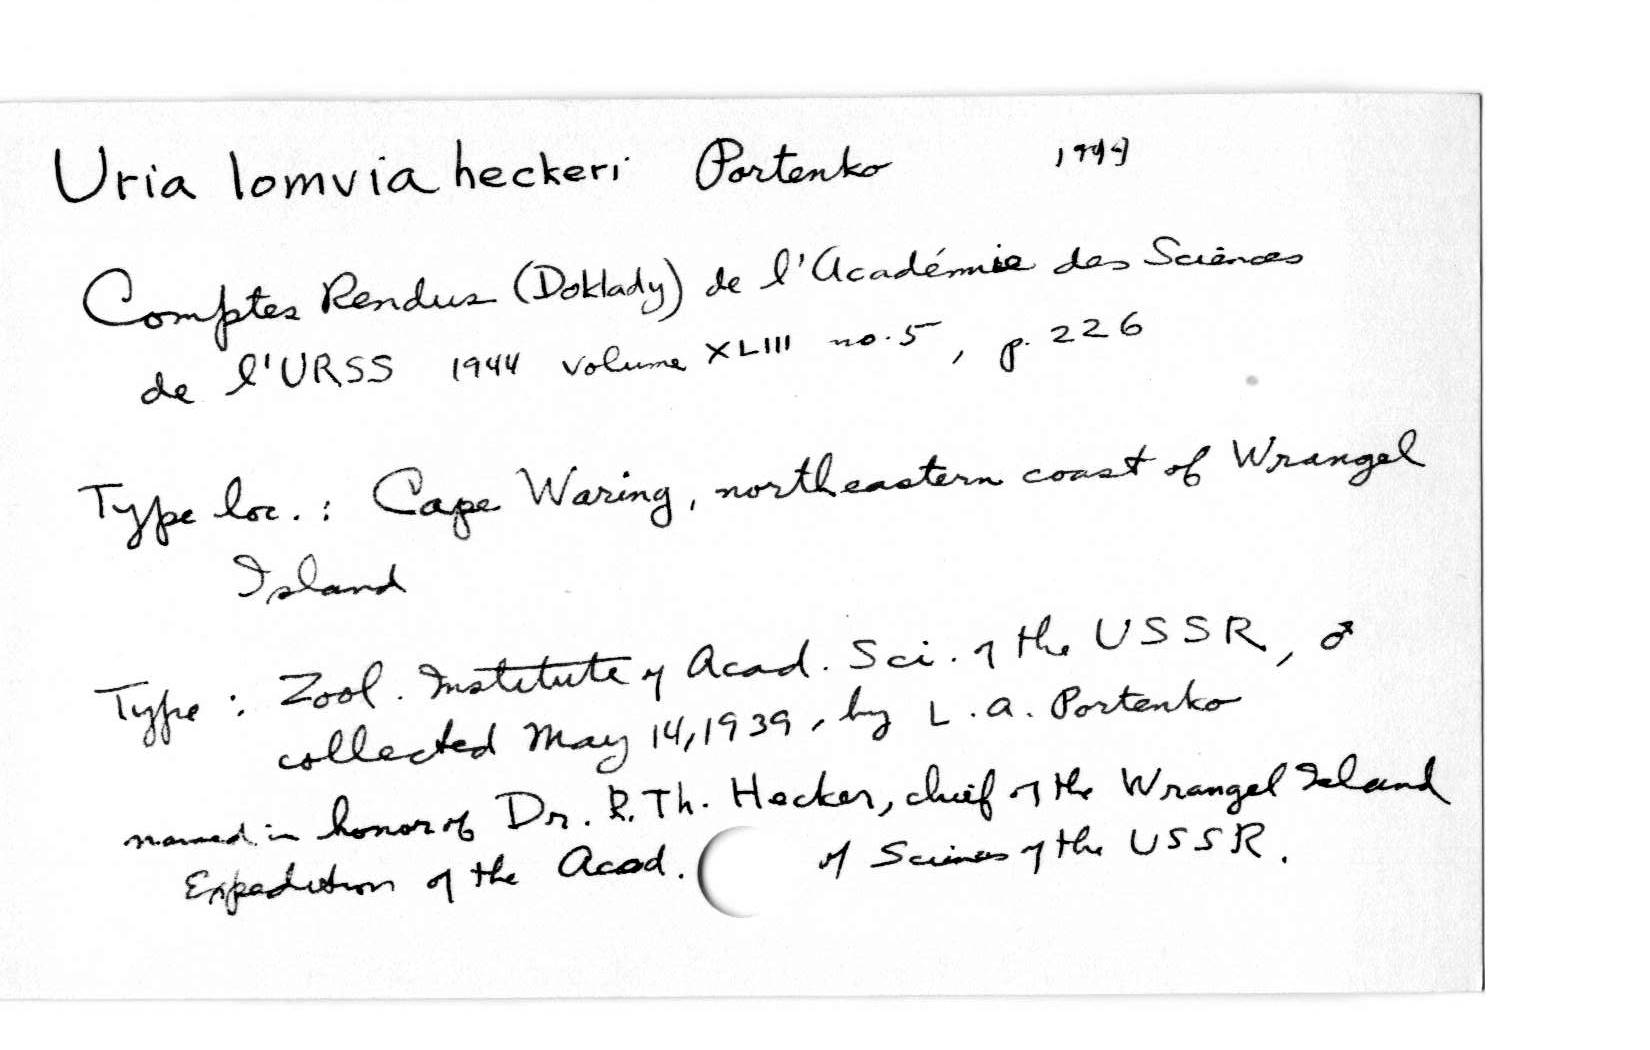 Uria lomvia heckeri Portenko 1944
Comptes Rendus (Doklady) de l'Académie des Sciences
de l'URSS 1944 volume XLIII no. 5, p. 226
Type loc. : Cape Waring, northeastern coast of Wrangel
Island
Type : Zool. Institute of Acad. Sci. of the USSR, ♂
collected May 14, 1939, by L. A. Portenko
named in honor of Dr. R. Th. Hecker, chief of the Wrangel Island
Expedition of the Acad. of Sciences of the USSR.